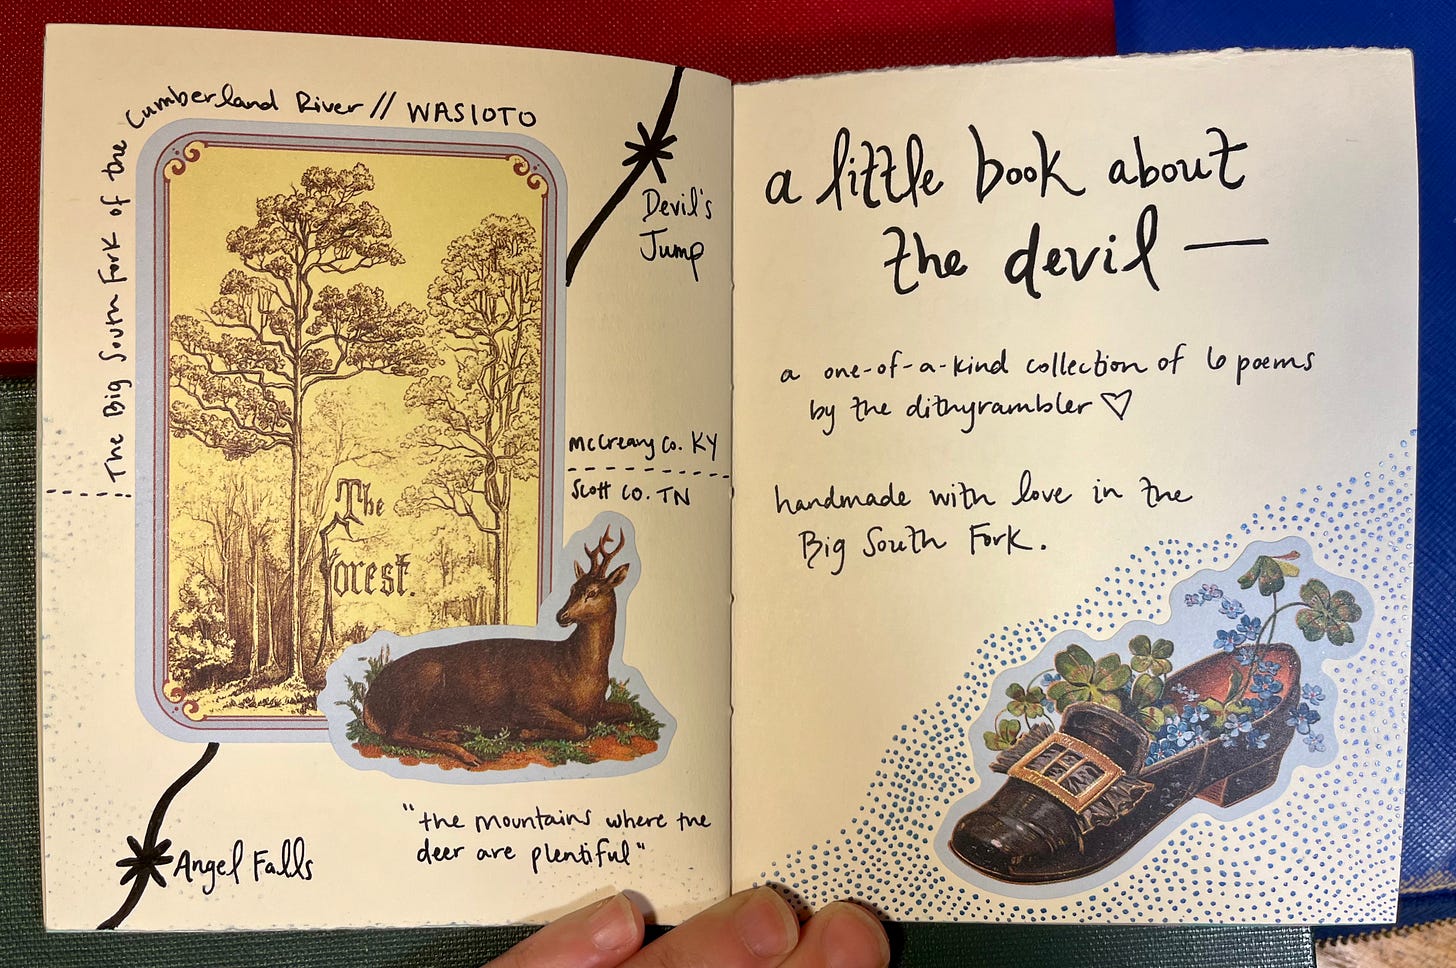 The Big South Fork of the Cumberland River // WASIOTO
Devil's
Jump
McCreary Co. KY
Scott Co. TN
The
Forest.
"the mountains where the
deer are plentiful"
Angel Falls
a little book about
the devil —
a one-of-a-kind collection of 6 poems
by the dithyrambler ♡
handmade with love in the
Big South Fork.